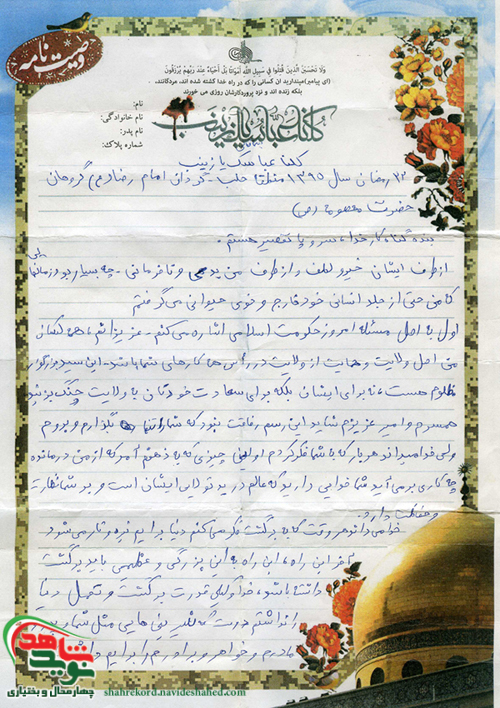 وصیت نامه
وَلا تَحسَبَنَّ الَّذینَ قُتِلُوا فی سَبیلِ اللَّهِ أَمواتًا بَل أَحیاءٌ عِندَ رَبِّهِم یُرزَقُونَ
(ای پیامبر)مپندارید این کسانی را که در راه خدا کشته شده اند، مردگانند،
بلکه زنده اند و نزد پروردگارشان روزی می خورند
نام:
نام خانوادگی:
نام پدر:
شماره پلاک:
کلنا عباسک یا زینب
کلنا عباسک یا زینب
۱۳ رمضان سال ۱۳۹۵ منطقه حلب - گردان امام رضا (ع) گروهان
حضرت معصومه (س)
بنده گناه کار خدا، سر و پا تقصیر هستم.
از طرف ایشان خیر و لطف و از طرف من بدی و نافرمانی - چه بسیار بود زمانهایی
گاهی حتی از جلد انسانی خود خارج و خوی حیوانی می گرفتم
اول به اصل مسئله امروز حکومت اسلامی اشاره می کنم - عزیزانم، همه کسان
من اصل ولایت و حمایت از ولایت در رأس همه کارهای شما باشد. این سید بزرگوار
مظلوم هست، نه برای ایشان بلکه برای سعادت خودتان به ولایت چنگ بزنید
همسرم و امیر عزیزم شاید این رسم رفاقت نبود که شما را تنها بگذارم و بروم
ولی خدا میداند هر بار که به شما فکر کردم اولین چیزی که به ذهنم آمد که از من درمانده
چه کاری بر می آید شما خدایی دارید که عالم در ید توانای ایشان است و بر شما نظارت
و حفاظت دارد.
خدا می داند هر وقت که به برگشت فکر می کنم دنیا برایم تیره و تار می شود
آخر این راه، این راه به این بزرگی و عظمی باید برگشت
داشته باشد، خدا گواهی قدرت برگشت و تحمل دنیا
را نداشتم درست که عزیزهایی مثل شما و
مادرم و خواهر و برادرم را برایم
نوید شاهد
چهارمحال و بختیاری
shahrekord.navideshahed.com